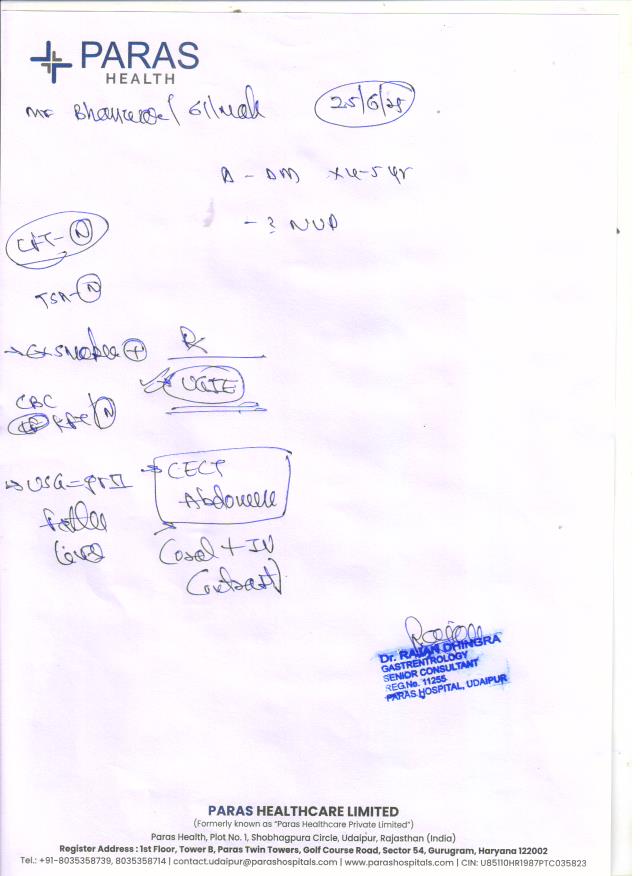 PARAS
HEALTH
Mr Bhanwar 61/male
25/6/25
Δ - DM x 4-5 yr
- ? NUD
LFT - N
TSH - N
→ Ex smoker +
Rx
UGIE
CBC
RFT N
→ USG = gr II
fatty
liver
→ CECT
Abdomen
(oral + IV
Contrast)
Dr. RAJAN DHINGRA
GASTRENTROLOGY
SENIOR CONSULTANT
REG.No. 11255
PARAS HOSPITAL, UDAIPUR
PARAS HEALTHCARE LIMITED
(Formerly known as "Paras Healthcare Private Limited")
Paras Health, Plot No. 1, Shobhagpura Circle, Udaipur, Rajasthan (India)
Register Address : 1st Floor, Tower B, Paras Twin Towers, Golf Course Road, Sector 54, Gurugram, Haryana 122002
Tel.: +91-8035358739, 8035358714 | contact.udaipur@parashospitals.com | www.parashospitals.com | CIN: U85110HR1987PTC035823